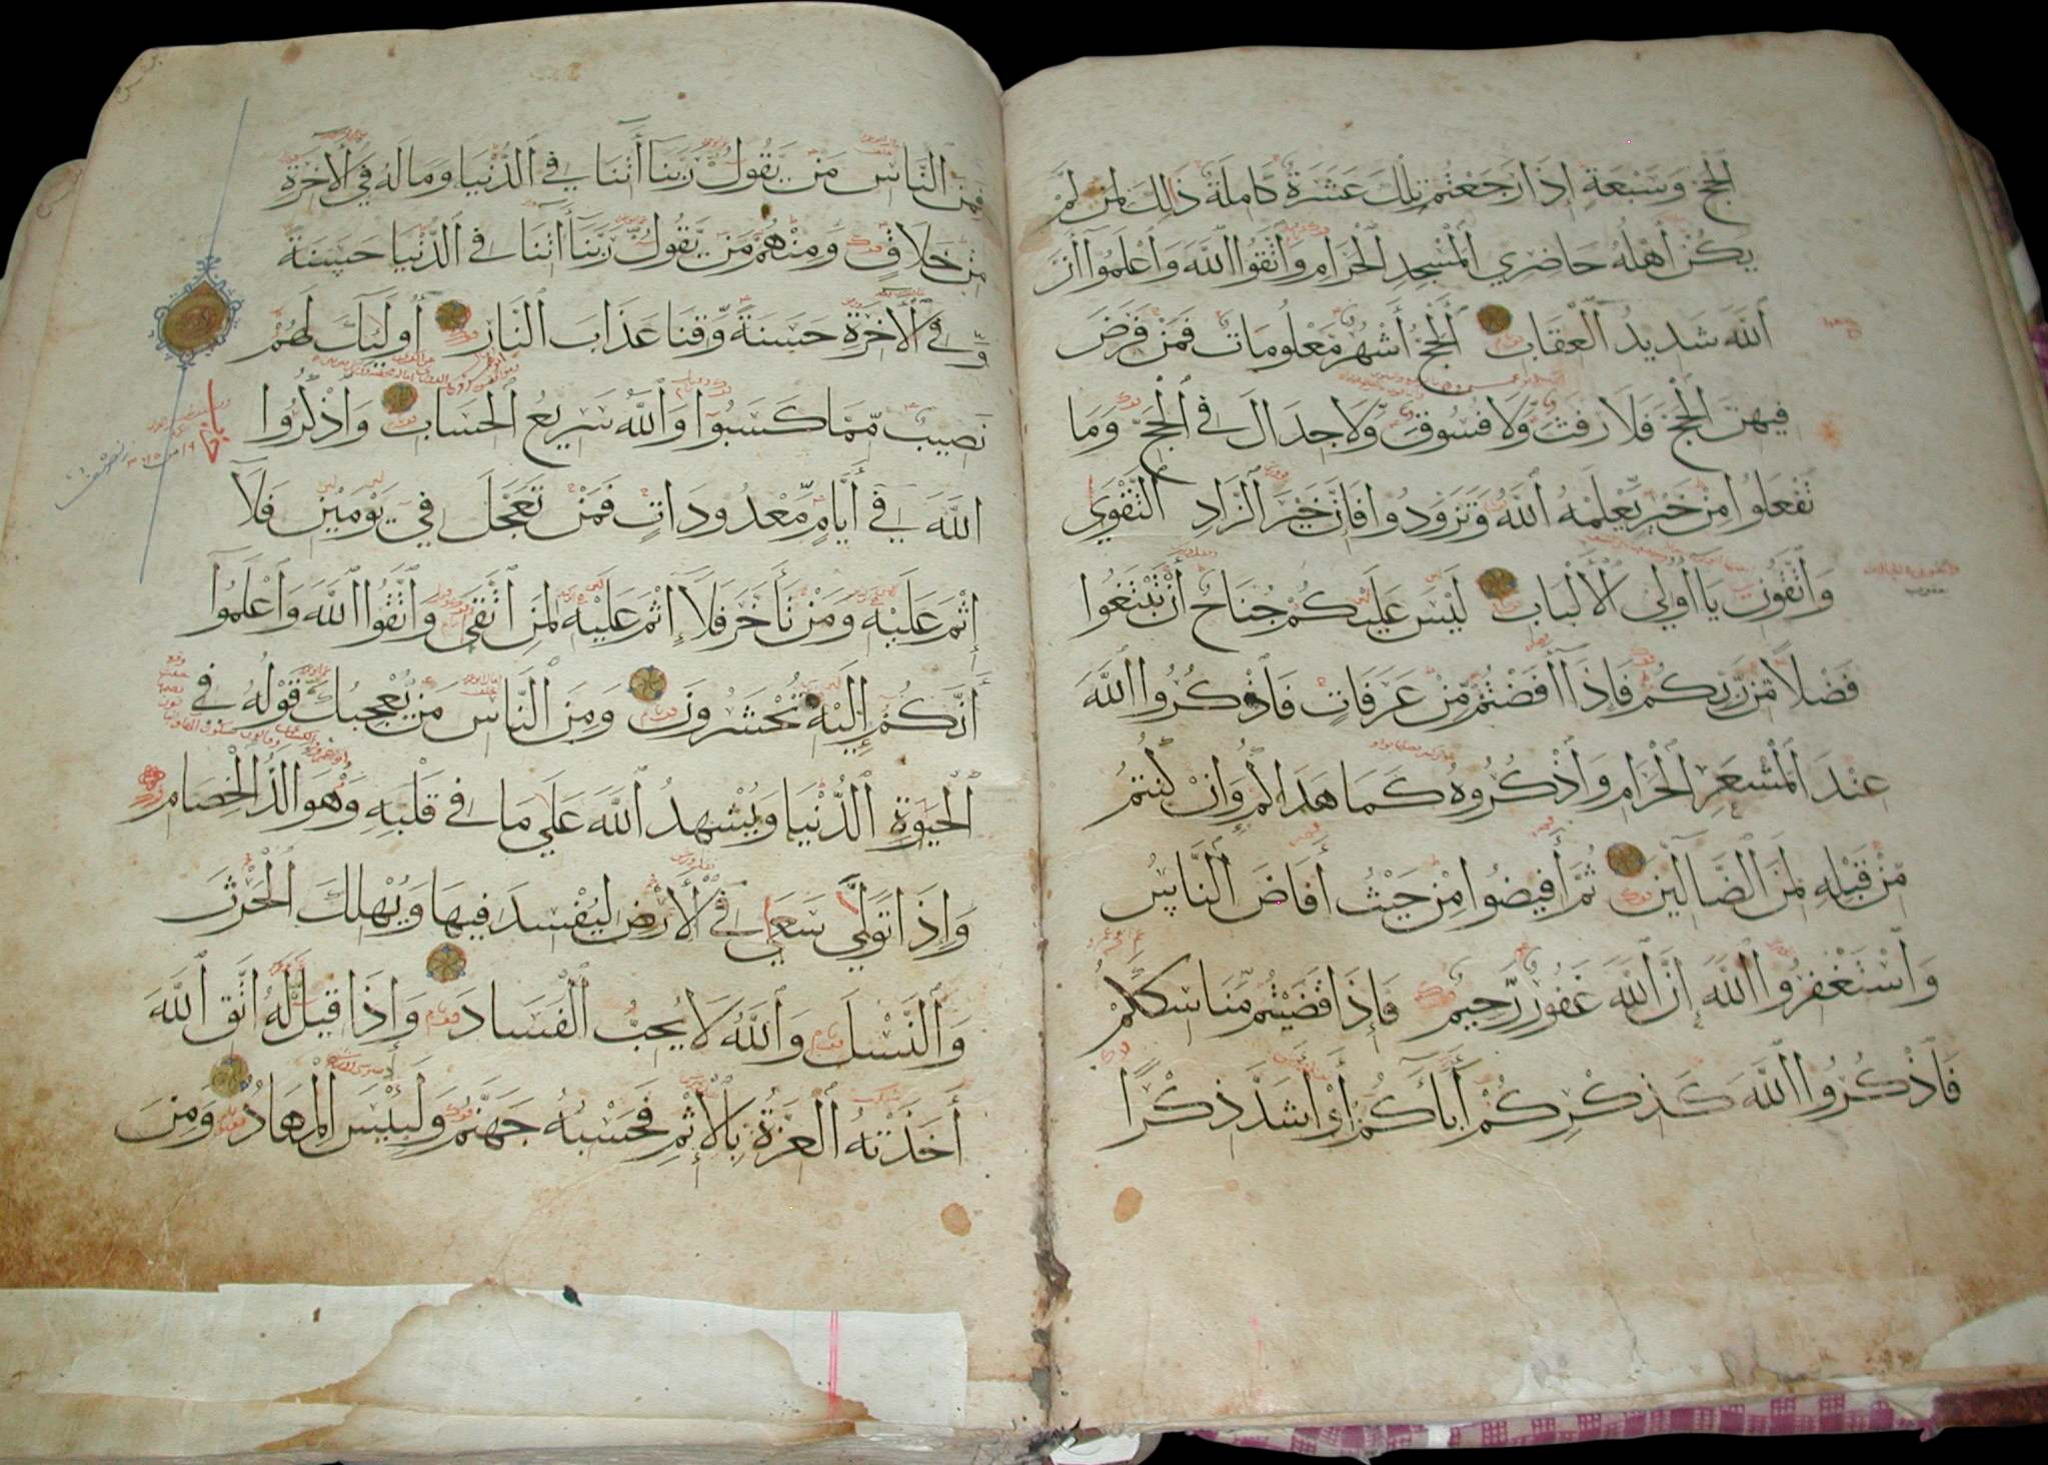 الْحَجِّ وَسَبْعَةٍ إِذَا رَجَعْتُمْ تِلْكَ عَشَرَةٌ كَامِلَةٌ ذَلِكَ لِمَنْ لَمْ
يَكُنْ أَهْلُهُ حَاضِرِي الْمَسْجِدِ الْحَرَامِ وَاتَّقُوا اللَّهَ وَاعْلَمُوا أَنَّ
اللَّهَ شَدِيدُ الْعِقَابِ الْحَجُّ أَشْهُرٌ مَعْلُومَاتٌ فَمَنْ فَرَضَ
فِيهِنَّ الْحَجَّ فَلَا رَفَثَ وَلَا فُسُوقَ وَلَا جِدَالَ فِي الْحَجِّ وَمَا
تَفْعَلُوا مِنْ خَيْرٍ يَعْلَمْهُ اللَّهُ وَتَزَوَّدُوا فَإِنَّ خَيْرَ الزَّادِ التَّقْوَى
وَاتَّقُونِ يَا أُولِي الْأَلْبَابِ لَيْسَ عَلَيْكُمْ جُنَاحٌ أَنْ تَبْتَغُوا
فَضْلًا مِنْ رَبِّكُمْ فَإِذَا أَفَضْتُمْ مِنْ عَرَفَاتٍ فَاذْكُرُوا اللَّهَ
عِنْدَ الْمَشْعَرِ الْحَرَامِ وَاذْكُرُوهُ كَمَا هَدَاكُمْ وَإِنْ كُنْتُمْ
مِنْ قَبْلِهِ لَمِنَ الضَّالِّينَ ثُمَّ أَفِيضُوا مِنْ حَيْثُ أَفَاضَ النَّاسُ
وَاسْتَغْفِرُوا اللَّهَ إِنَّ اللَّهَ غَفُورٌ رَحِيمٌ فَإِذَا قَضَيْتُمْ مَنَاسِكَكُمْ
فَاذْكُرُوا اللَّهَ كَذِكْرِكُمْ آبَاءَكُمْ أَوْ أَشَدَّ ذِكْرًا
فَمِنَ النَّاسِ مَنْ يَقُولُ رَبَّنَا آتِنَا فِي الدُّنْيَا وَمَا لَهُ فِي الْآخِرَةِ
مِنْ خَلَاقٍ وَمِنْهُمْ مَنْ يَقُولُ رَبَّنَا آتِنَا فِي الدُّنْيَا حَسَنَةً
وَفِي الْآخِرَةِ حَسَنَةً وَقِنَا عَذَابَ النَّارِ أُولَئِكَ لَهُمْ
نَصِيبٌ مِمَّا كَسَبُوا وَاللَّهُ سَرِيعُ الْحِسَابِ وَاذْكُرُوا
اللَّهَ فِي أَيَّامٍ مَعْدُودَاتٍ فَمَنْ تَعَجَّلَ فِي يَوْمَيْنِ فَلَا
إِثْمَ عَلَيْهِ وَمَنْ تَأَخَّرَ فَلَا إِثْمَ عَلَيْهِ لِمَنِ اتَّقَى وَاتَّقُوا اللَّهَ وَاعْلَمُوا
أَنَّكُمْ إِلَيْهِ تُحْشَرُونَ وَمِنَ النَّاسِ مَنْ يُعْجِبُكَ قَوْلُهُ فِي
الْحَيَوةِ الدُّنْيَا وَيُشْهِدُ اللَّهَ عَلَى مَا فِي قَلْبِهِ وَهُوَ أَلَدُّ الْخِصَامِ
وَإِذَا تَوَلَّى سَعَى فِي الْأَرْضِ لِيُفْسِدَ فِيهَا وَيُهْلِكَ الْحَرْثَ
وَالنَّسْلَ وَاللَّهُ لَا يُحِبُّ الْفَسَادَ وَإِذَا قِيلَ لَهُ اتَّقِ اللَّهَ
أَخَذَتْهُ الْعِزَّةُ بِالْإِثْمِ فَحَسْبُهُ جَهَنَّمُ وَلَبِئْسَ الْمِهَادُ وَمِنَ